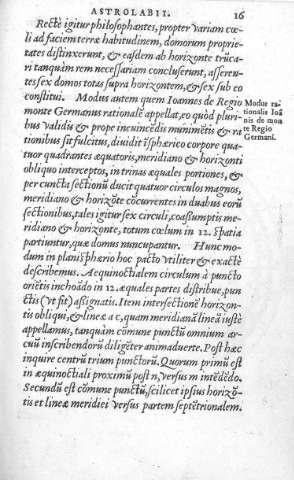 ASTROLABII. 16
Rectè igitur philosophantes, propter variam cœ-
li ad faciem terræ habitudinem, domorum proprie-
tates distinxerunt, & easdem ab horizonte trūca-
ri tanquàm rem necessariam concluserunt, asseren-
tes sex domos totas supra horizontem, & sex sub eo
constitui. Modus autem quem Ioannes de Regio
monte Germanus rationalē appellat, eo quòd pluri-
bus validis & propè inuincēdis munimētis & ra
tionibus sit fulcitus, diuidit ī sphærico corpore qua-
tuor quadrantes æquatoris, meridiano & horizonti
obliquo interceptos, in trinas æquales portiones, &
per cuncta sectionū ducit quatuor circulos magnos,
meridiano & horizōte cōcurrentes in duabus eorū
sectionibus, tales igitur sex circuli, coassumptis me-
ridiano & horizonte, totum cœlum in 12. spatia
partiuntur, quæ domus nuncupantur. Hunc mo-
dum in planisphærio hoc pacto vtiliter & exactè
describemus. Aequinoctialem circulum à pūncto
oriētis inchoādo in 12. æquales partes distribue, pun
ctis (vt fit) assignatis. Item intersectionē horizon-
tis obliqui, & lineæ a c, quam meridianā lineā iustè
appellamus, tanquàm cōmune punctū omnium ar-
cuū inscribendorū diligēter animaduerte. Post hæc
inquire centrū trium punctorū. Quorum primū est
in æquinoctiali proximū post n, versus m intēdēdo.
Secundū est cōmune punctū, scilicet ipsius horizō-
tis et lineæ meridiei versus partem septētrionalem.
Modus ra-
tionalis Ioā
nis de mon
te Regio
Germani.